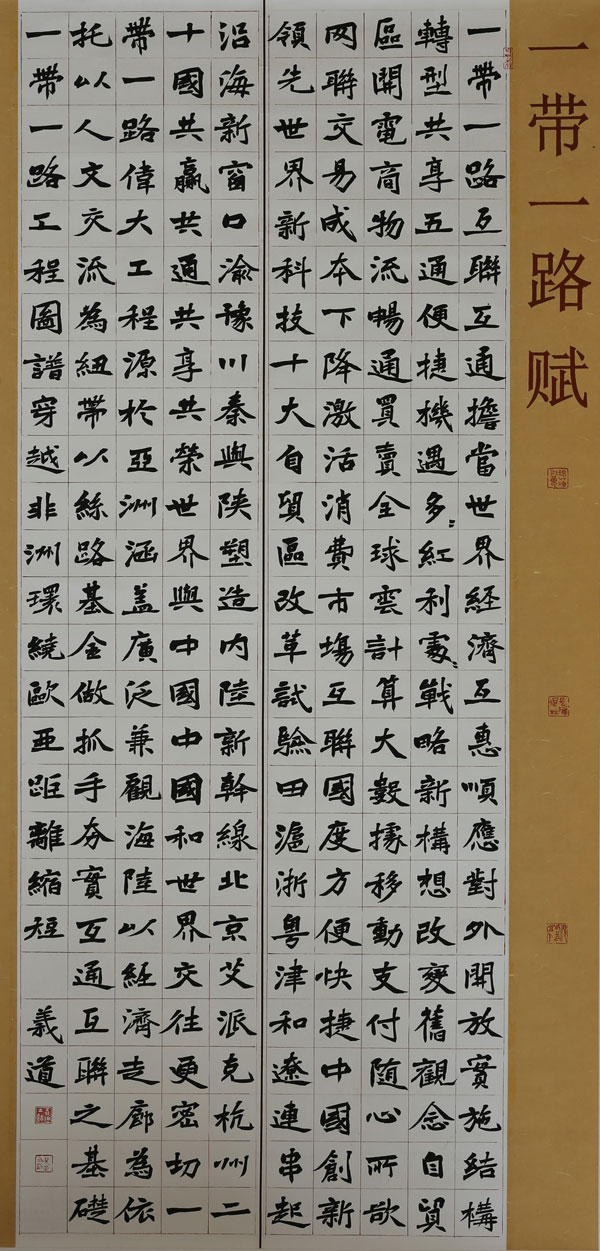 一带一路赋
一帶一路互聯互通擔當世界經濟互惠順應對外開放實施結構
轉型共享五通便捷機遇多〻紅利處〻戰略新構想改變舊觀念自貿
區開電商物流暢通買賣全球雲計算大數據移動支付随心所欲
网聯交易成本下降激活消費市塲互聯國度方便快捷中國創新
領先世界新科技十大自貿區改革試驗田滬浙粵津和遼連串起
沿海新窗口渝豫川秦與陝塑造内陸新幹線北京艾派克杭州二
十國共贏共通共享共榮世界與中國中國和世界交往更密切一
帶一路偉大工程源於亞洲涵盖廣泛兼觀海陸以經濟走廊為依
托以人文交流為紐帶以絲路基金做抓手夯實互通互聯之基礎
一帶一路工程圖譜穿越非洲環繞歐亞距離縮短
義道